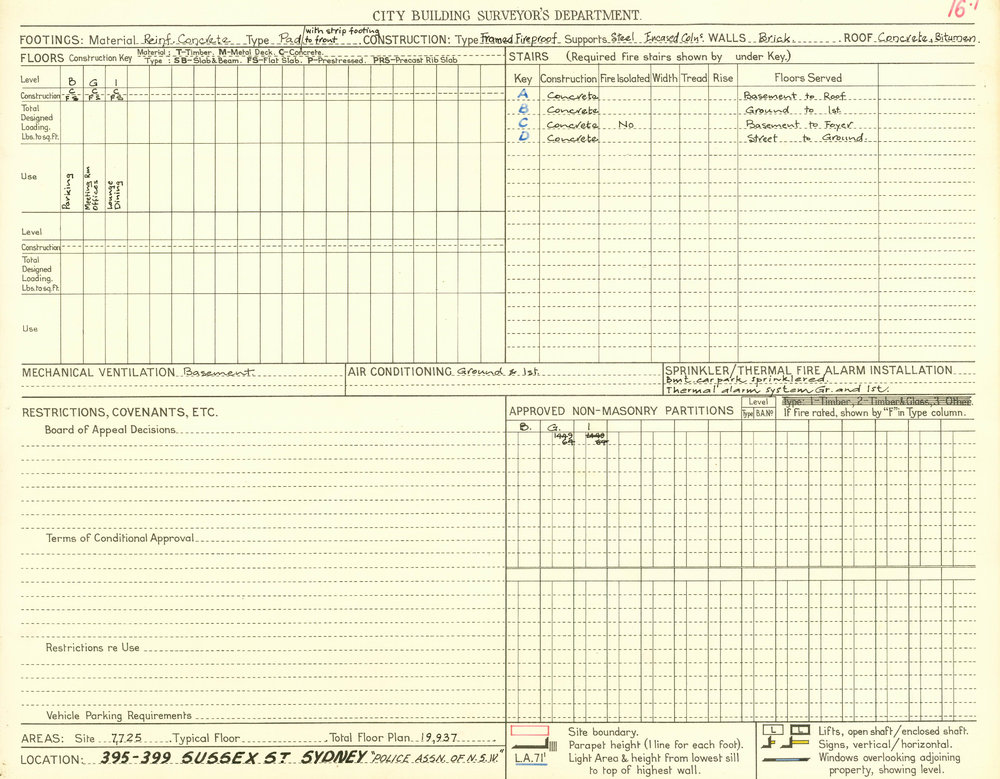 CITY BUILDING SURVEYOR'S DEPARTMENT.
16.1
FOOTINGS: Material Reinf. Concrete Type Pad / with strip footing to front CONSTRUCTION: Type Framed Fireproof Supports Steel Encased Colns. WALLS Brick. ROOF Concrete, Bitumen.
FLOORS Construction Key Material : T-Timber, M-Metal Deck, C-Concrete.
Type : SB-Slab & Beam. FS-Flat Slab. P-Prestressed. PRS-Precast Rib Slab
Level B G 1
Construction C C C
FS FS FS
Total Designed Loading. Lbs. to sq. ft.
Use Parking Meeting Rm Offices Lounge Dining
Level
Construction
Total Designed Loading. Lbs. to sq. ft.
Use
STAIRS (Required Fire stairs shown by under Key.)
Key Construction Fire Isolated Width Tread Rise Floors Served
A Concrete Basement to Roof
B Concrete Ground to 1st
C Concrete No Basement to Foyer
D Concrete Street to Ground.
MECHANICAL VENTILATION Basement.
AIR CONDITIONING Ground & 1st.
SPRINKLER/THERMAL FIRE ALARM INSTALLATION
Bmt. car park sprinklered.
Thermal alarm system Gr. and 1st.
RESTRICTIONS, COVENANTS, ETC.
Board of Appeal Decisions.
Terms of Conditional Approval
Restrictions re Use
Vehicle Parking Requirements
APPROVED NON-MASONRY PARTITIONS
Level
Type B.A.Nº
Type: 1-Timber, 2-Timber & Glass, 3 Other.
If fire rated, shown by "F" in Type column.
B. G. 1
AREAS: Site 7,725 Typical Floor Total Floor Plan 19,937
LOCATION: 395-399 SUSSEX ST SYDNEY "POLICE ASSN. OF N.S.W."
Site boundary.
Parapet height (1 line for each foot).
L.A.71' Light Area & height from lowest sill
to top of highest wall.
L Lifts, open shaft / enclosed shaft.
Signs, vertical / horizontal.
Windows overlooking adjoining
property, showing level.